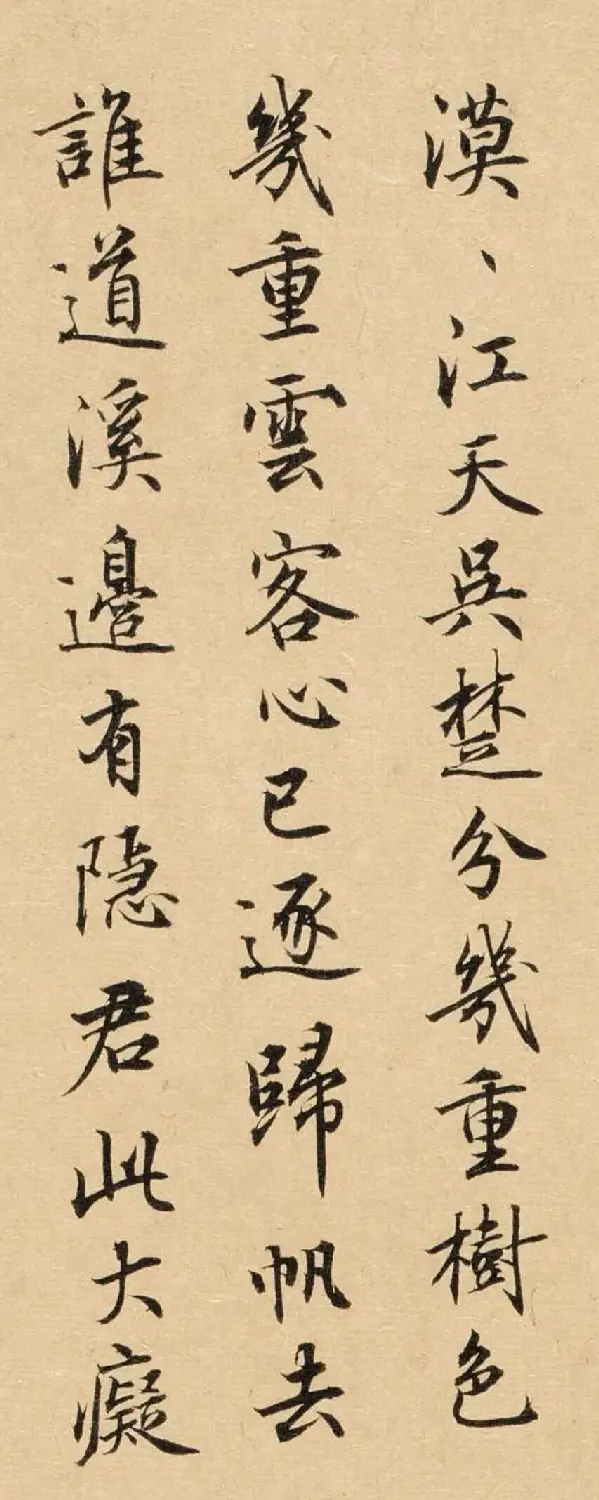 漠、江天吳楚分幾重樹色
幾重雲客心已逐歸帆去
誰道溪邊有隱君此大癡